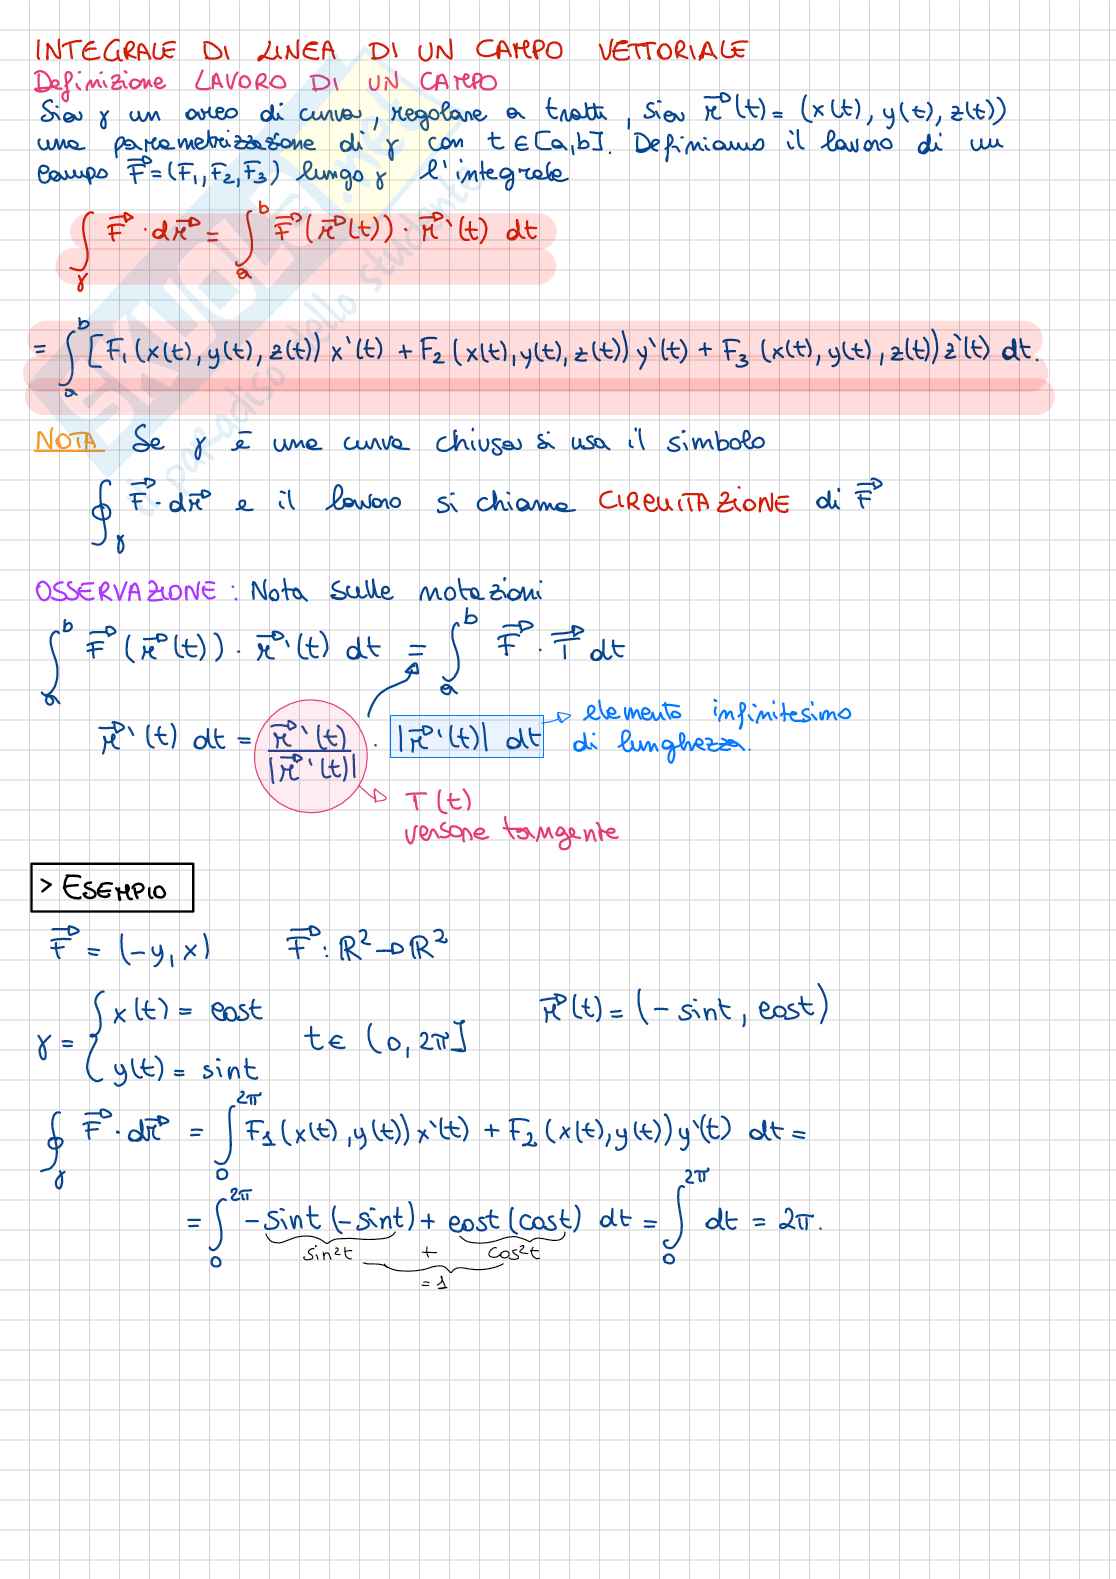 INTEGRALE DI LINEA DI UN CAMPO VETTORIALE
Definizione LAVORO DI UN CAMPO
Sia γ un arco di curva, regolare a tratti, sia r⃗(t) = (x(t), y(t), z(t))
una parametrizzazione di γ con t ∈ [a,b]. Definiamo il lavoro di un
campo F⃗ = (F₁, F₂, F₃) lungo γ l'integrale
∫_γ F⃗ · dr⃗ = ∫_a^b F⃗(r⃗(t)) · r⃗'(t) dt
= ∫_a^b [F₁(x(t), y(t), z(t)) x'(t) + F₂(x(t), y(t), z(t)) y'(t) + F₃(x(t), y(t), z(t)) z'(t) dt.
NOTA Se γ è una curva chiusa si usa il simbolo
∮_γ F⃗ · dr⃗ e il lavoro si chiama CIRCUITAZIONE di F⃗
OSSERVAZIONE : Nota sulle notazioni
∫_a^b F⃗(r⃗(t)) · r⃗'(t) dt = ∫_a^b F⃗ · T⃗ dt
r⃗'(t) dt = r⃗'(t) / |r⃗'(t)| · |r⃗'(t)| dt → elemento infinitesimo
di lunghezza.
T(t)
versore tangente
> ESEMPIO
F⃗ = (-y, x) F⃗ : ℝ² → ℝ²
γ = { x(t) = cost r⃗(t) = (-sint, cost)
t ∈ (0, 2π]
y(t) = sint
∮_γ F⃗ · dr⃗ = ∫_0^2π F₁(x(t), y(t)) x'(t) + F₂(x(t), y(t)) y'(t) dt =
= ∫_0^2π -sint(-sint) + cost(cost) dt = ∫_0^2π dt = 2π.
sin²t + cos²t
= 1
SKUOLA.net
il paradiso dello studente